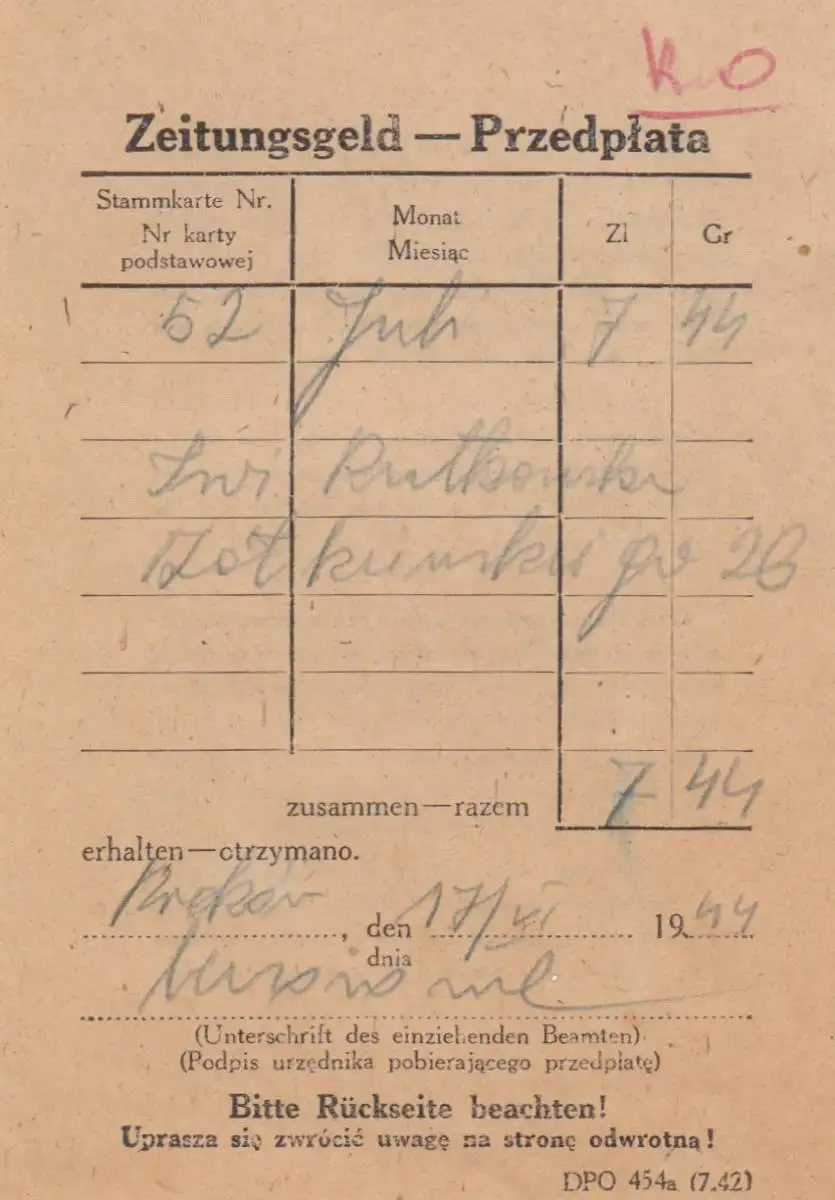 K.O
Zeitungsgeld — Przedpłata
Stammkarte Nr.
Nr karty
podstawowej
Monat
Miesiąc
Zl
Gr
52 Juli 7 44
Rutkowski
28
zusammen—razem 7 44
erhalten—otrzymano.
Kraków, den 17/VI 1944
dnia
(Unterschrift des einziehenden Beamten)
(Podpis urzędnika pobierającego przedpłatę)
Bitte Rückseite beachten!
Uprasza się zwrócić uwagę na stronę odwrotną!
DPO 454a (7.42)